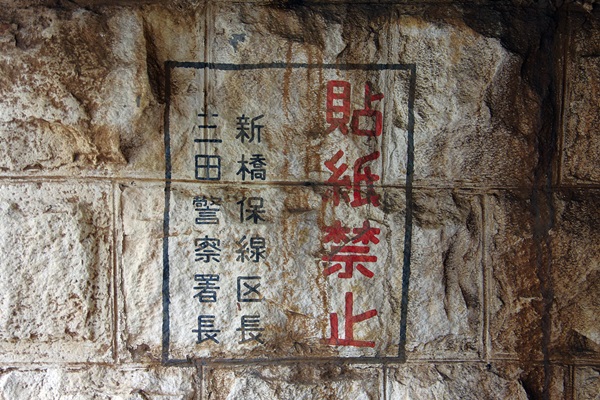 貼紙禁止
新橋保線区長
三田警察署長